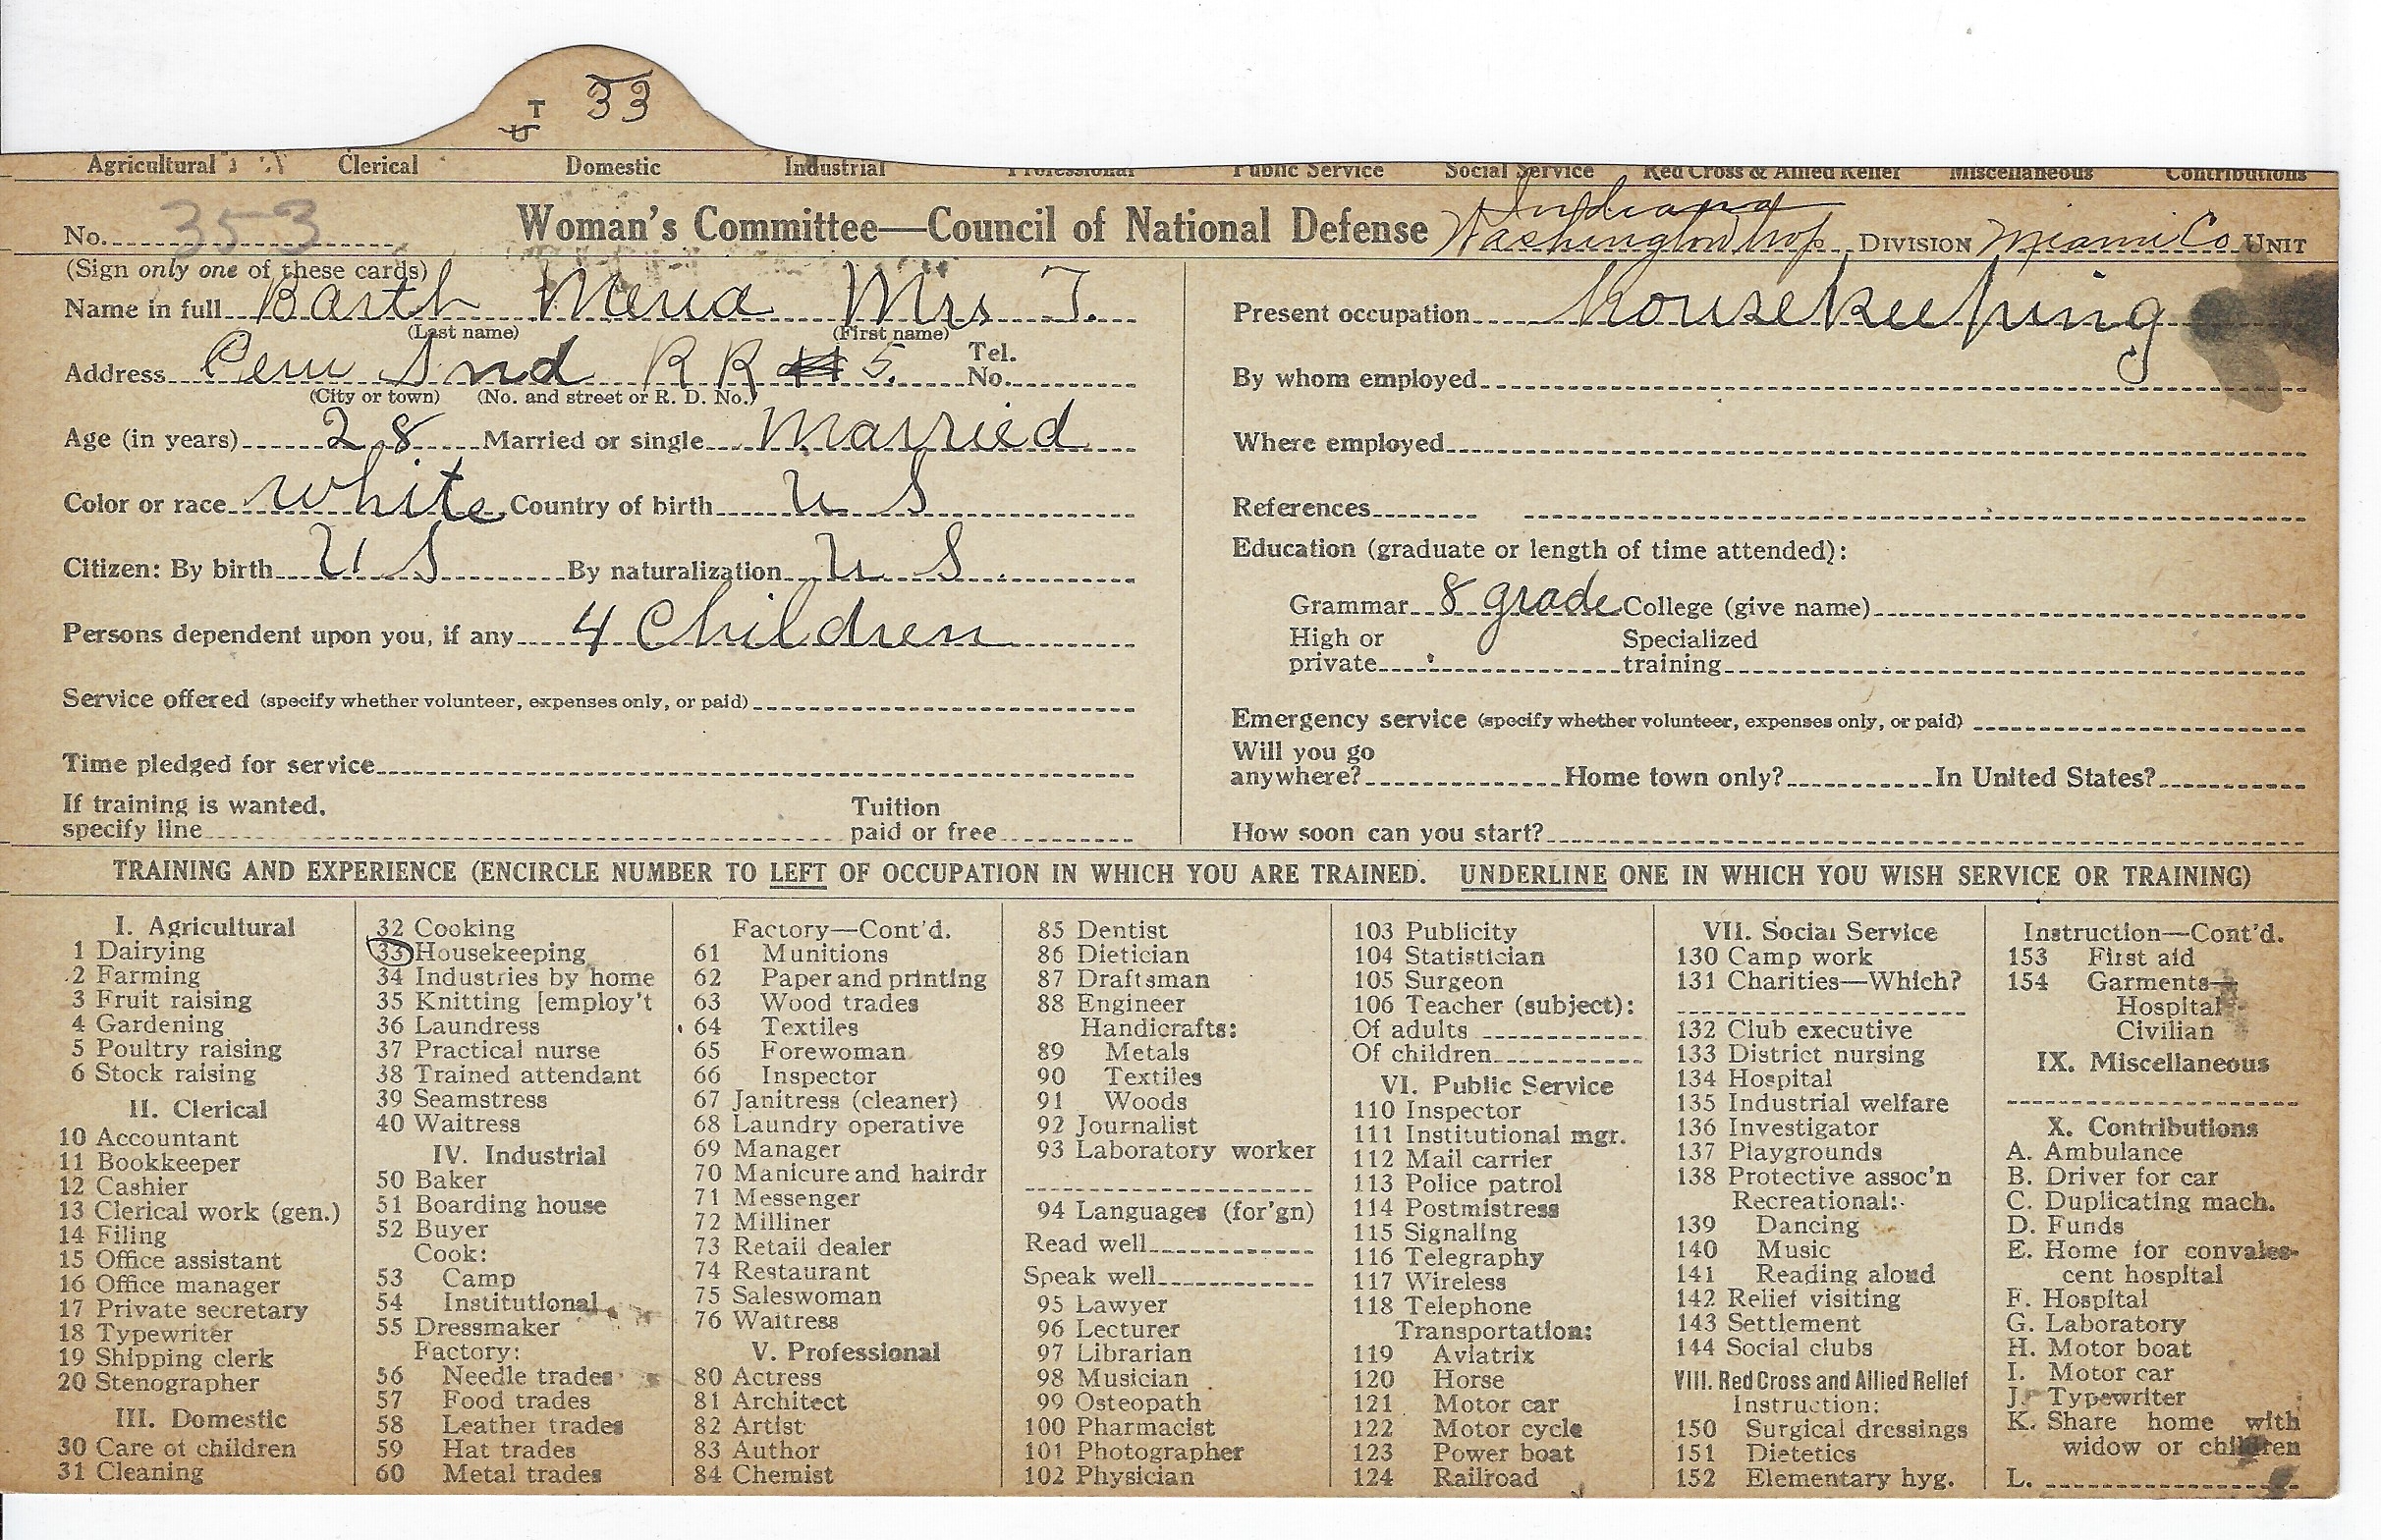 T 33
Agricultural Clerical Domestic Industrial Professional Public Service Social Service Red Cross & Allied Relief Miscellaneous Contributions
Indiana
No. 353 Woman's Committee—Council of National Defense Washington twp. DIVISION Miami Co UNIT
(Sign only one of these cards)
Name in full Barth Mrs T.
(Last name) (First name)
Address Peru Ind R R 5. Tel. No.
(City or town) (No. and street or R. D. No.)
Age (in years) 28 Married or single Married
Color or race White Country of birth U S
Citizen: By birth U S By naturalization U S.
Persons dependent upon you, if any 4 Children
Service offered (specify whether volunteer, expenses only, or paid)
Time pledged for service
If training is wanted, specify line Tuition paid or free
Present occupation housekeeping
By whom employed
Where employed
References
Education (graduate or length of time attended):
Grammar 8 grade College (give name)
High or private Specialized training
Emergency service (specify whether volunteer, expenses only, or paid)
Will you go anywhere? Home town only? In United States?
How soon can you start?
TRAINING AND EXPERIENCE (ENCIRCLE NUMBER TO LEFT OF OCCUPATION IN WHICH YOU ARE TRAINED. UNDERLINE ONE IN WHICH YOU WISH SERVICE OR TRAINING)
I. Agricultural
1 Dairying
2 Farming
3 Fruit raising
4 Gardening
5 Poultry raising
6 Stock raising
II. Clerical
10 Accountant
11 Bookkeeper
12 Cashier
13 Clerical work (gen.)
14 Filing
15 Office assistant
16 Office manager
17 Private secretary
18 Typewriter
19 Shipping clerk
20 Stenographer
III. Domestic
30 Care of children
31 Cleaning
32 Cooking
33 Housekeeping
34 Industries by home
35 Knitting [employ't
36 Laundress
37 Practical nurse
38 Trained attendant
39 Seamstress
40 Waitress
IV. Industrial
50 Baker
51 Boarding house
52 Buyer
Cook:
53 Camp
54 Institutional
55 Dressmaker
Factory:
56 Needle trades
57 Food trades
58 Leather trades
59 Hat trades
60 Metal trades
Factory—Cont'd.
61 Munitions
62 Paper and printing
63 Wood trades
64 Textiles
65 Forewoman
66 Inspector
67 Janitress (cleaner)
68 Laundry operative
69 Manager
70 Manicure and hairdr
71 Messenger
72 Milliner
73 Retail dealer
74 Restaurant
75 Saleswoman
76 Waitress
V. Professional
80 Actress
81 Architect
82 Artist
83 Author
84 Chemist
85 Dentist
86 Dietician
87 Draftsman
88 Engineer
Handicrafts:
89 Metals
90 Textiles
91 Woods
92 Journalist
93 Laboratory worker
94 Languages (for'gn)
Read well
Speak well
95 Lawyer
96 Lecturer
97 Librarian
98 Musician
99 Osteopath
100 Pharmacist
101 Photographer
102 Physician
103 Publicity
104 Statistician
105 Surgeon
106 Teacher (subject):
Of adults
Of children
VI. Public Service
110 Inspector
111 Institutional mgr.
112 Mail carrier
113 Police patrol
114 Postmistress
115 Signaling
116 Telegraphy
117 Wireless
118 Telephone
Transportation:
119 Aviatrix
120 Horse
121 Motor car
122 Motor cycle
123 Power boat
124 Railroad
VII. Social Service
130 Camp work
131 Charities—Which?
132 Club executive
133 District nursing
134 Hospital
135 Industrial welfare
136 Investigator
137 Playgrounds
138 Protective assoc'n
Recreational:
139 Dancing
140 Music
141 Reading aloud
142 Relief visiting
143 Settlement
144 Social clubs
VIII. Red Cross and Allied Relief
Instruction:
150 Surgical dressings
151 Dietetics
152 Elementary hyg.
Instruction—Cont'd.
153 First aid
154 Garments—
Hospital
Civilian
IX. Miscellaneous
X. Contributions
A. Ambulance
B. Driver for car
C. Duplicating mach.
D. Funds
E. Home for convales-
cent hospital
F. Hospital
G. Laboratory
H. Motor boat
I. Motor car
J. Typewriter
K. Share home with
widow or children
L.